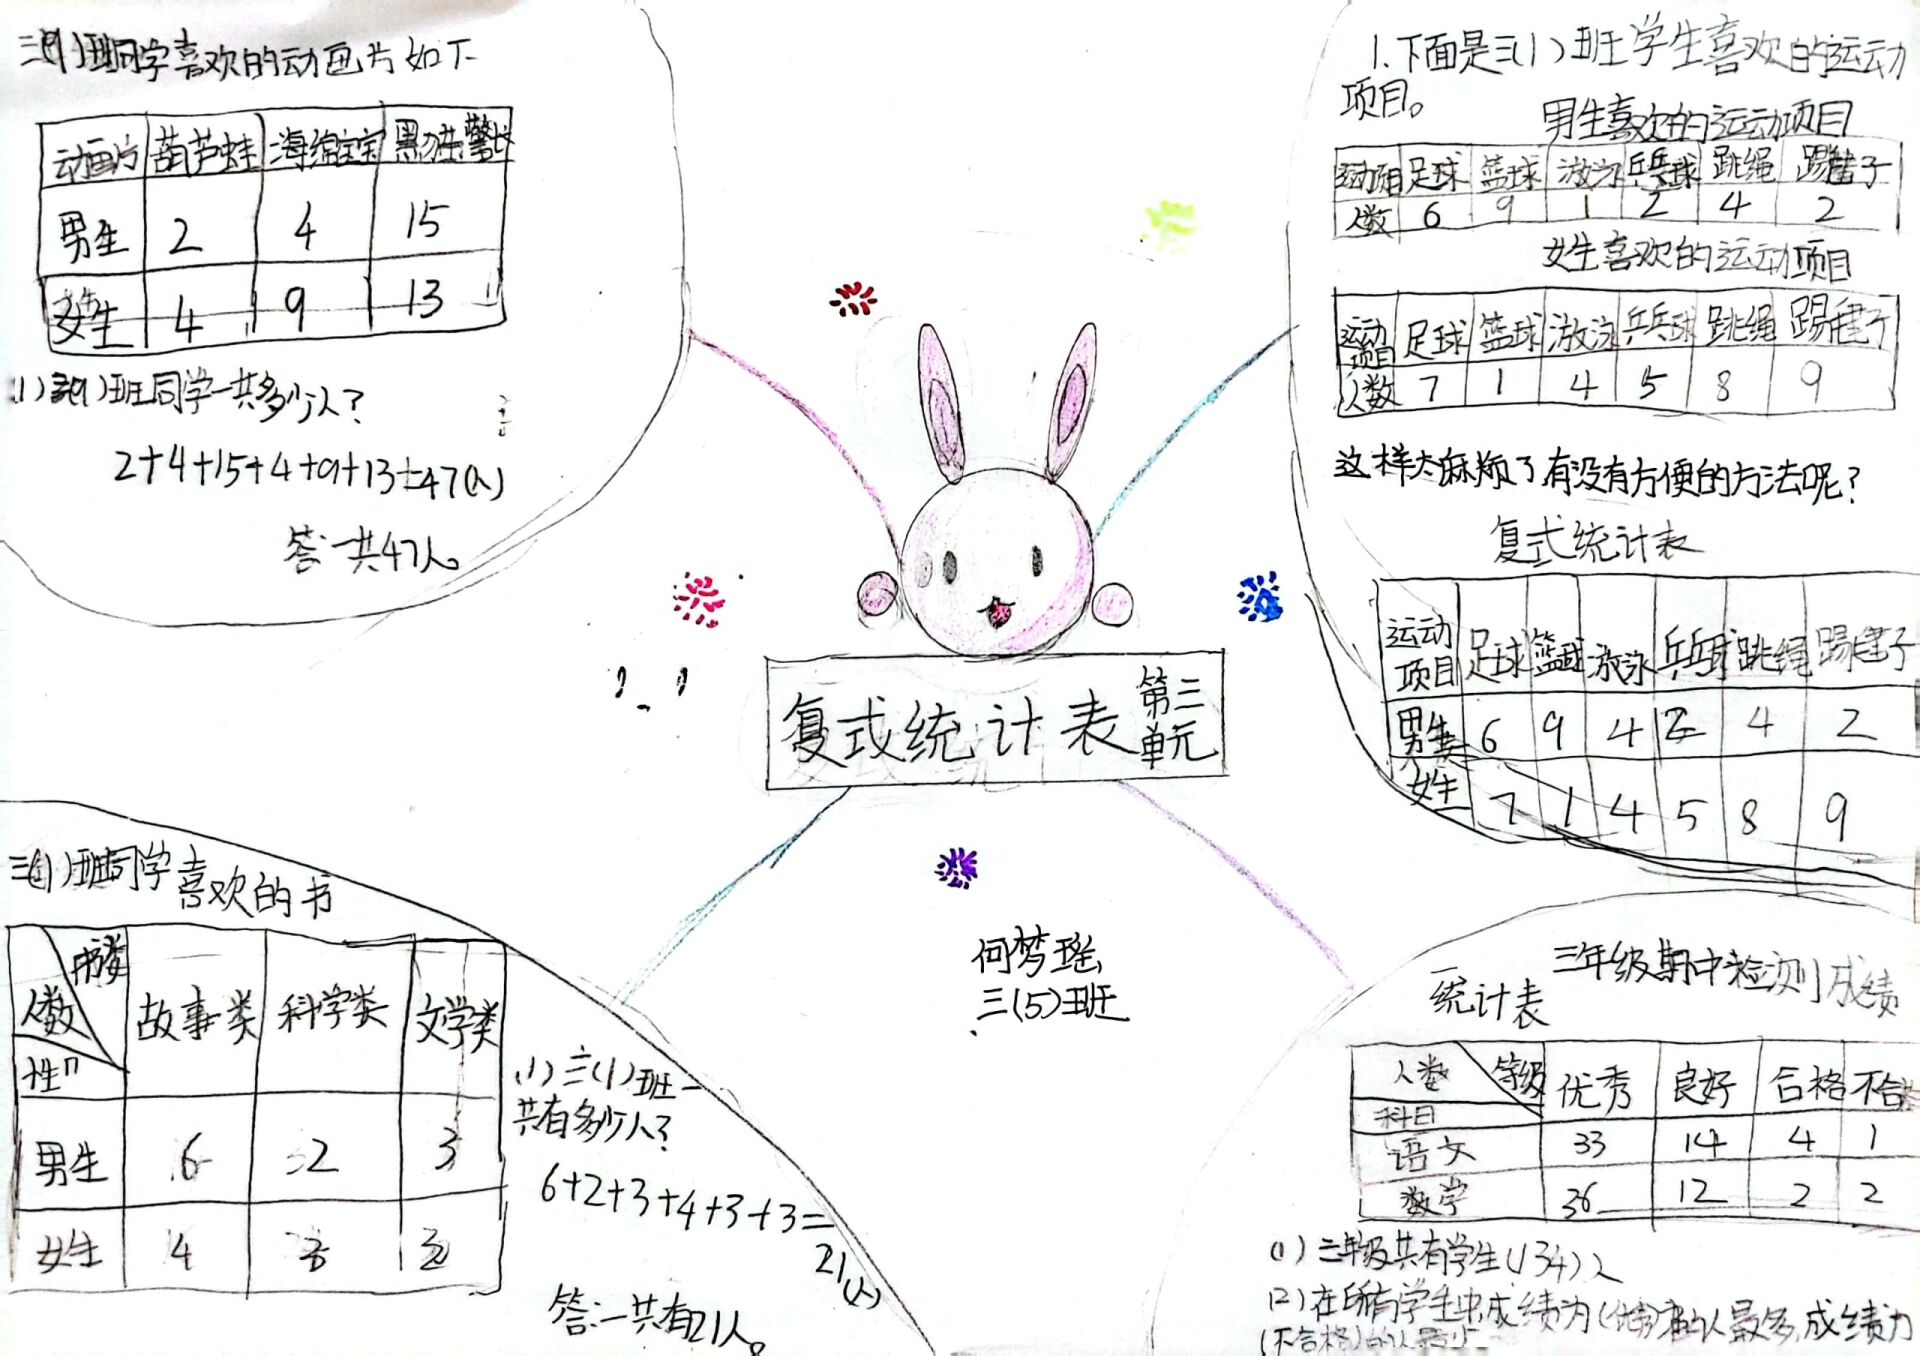 三(1)班同学喜欢的动画片如下
动画片 葫芦蛙 海绵宝宝 黑猫警长
男生 2 4 15
女生 4 9 13
(1)三(1)班同学一共多少人?
2+4+15+4+9+13=47(人)
答:一共47人。
1.下面是三(1)班学生喜欢的运动
项目。
男生喜欢的运动项目
运动项目 足球 篮球 游泳 乒乓球 跳绳 踢毽子
人数 6 9 1 2 4 2
女生喜欢的运动项目
运动项目 足球 篮球 游泳 乒乓球 跳绳 踢毽子
人数 7 1 4 5 8 9
这样太麻烦了有没有方便的方法呢?
复式统计表
运动项目 足球 篮球 游泳 乒乓球 跳绳 踢毽子
男生 6 9 4 2 4 2
女生 7 1 4 5 8 9
复式统计表 第三单元
三(1)班同学喜欢的书
书类
人数 故事类 科学类 文学类
性
男生 6 2 3
女生 4 3 3
(1)三(1)班一
共有多少人?
6+2+3+4+3+3=
21(人)
答:一共有21人。
何梦瑶
三(5)班
三年级期中检测成绩
统计表
人数 等级 优秀 良好 合格 不合
科目
语文 33 14 4 1
数学 36 12 2 2
(1)三年级共有学生(134)人
(2)在所有学生中,成绩为(优秀)的人最多,成绩为
(不合格)的人最少